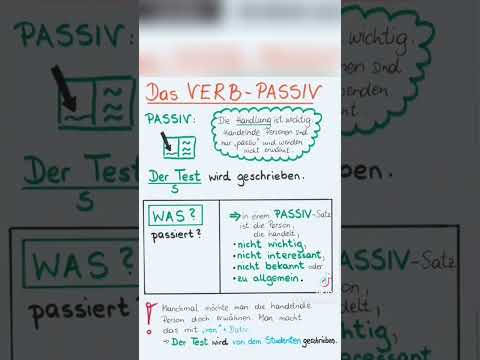 Das VERB-PASSIV
PASSIV:
Die Handlung ist wichtig.
Handelnde Personen sind
nur „passiv" und werden
nicht erwähnt.
Der Test wird geschrieben.
S
WAS?
passiert?
⇒ in einem PASSIV-Satz
ist die Person,
die handelt,
• nicht wichtig,
• nicht interessant,
• nicht bekannt oder
• zu allgemein.
! Manchmal möchte man die handelnde
Person doch erwähnen. Man macht
das mit „von" + Dativ.
→ Der Test wird von dem Studenten geschrieben.